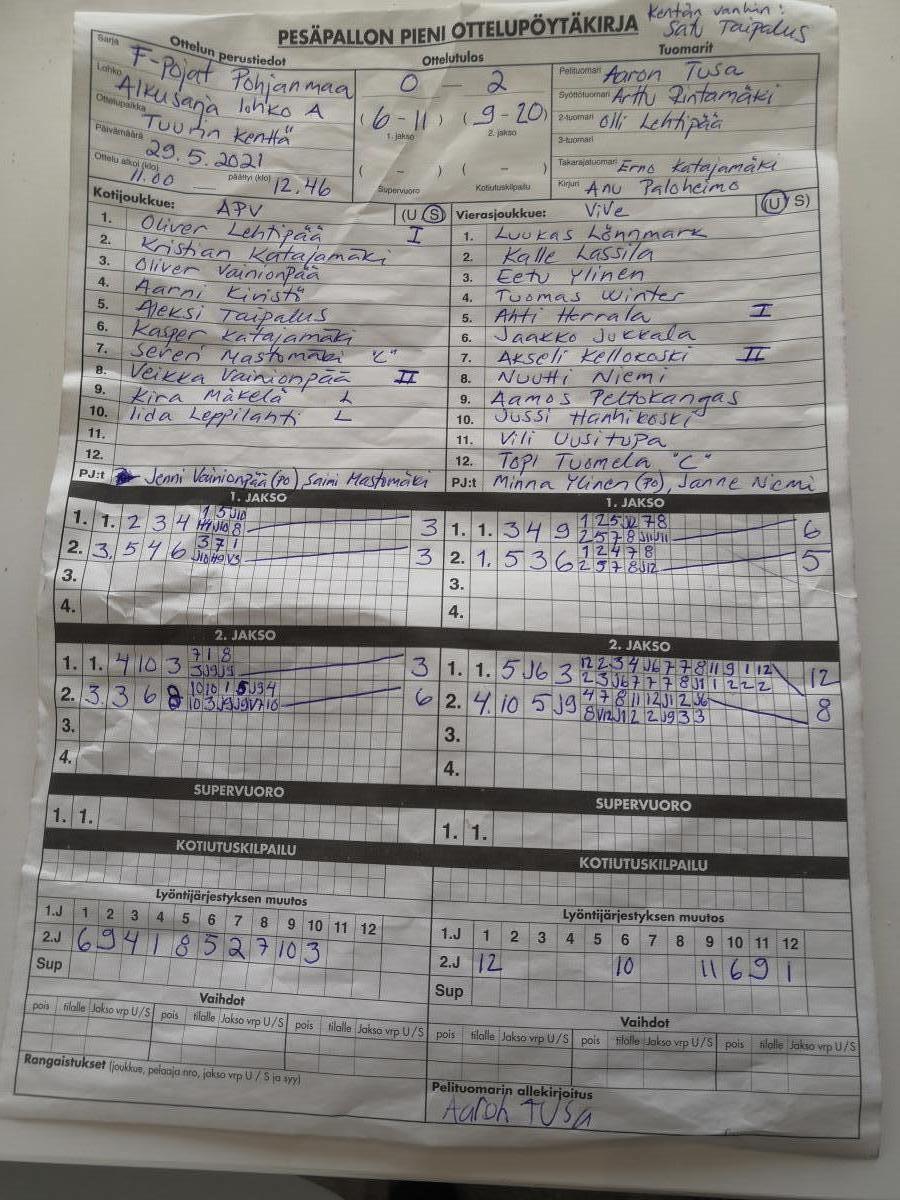 Kentän vanhin:
Satu Taipalus
PESÄPALLON PIENI OTTELUPÖYTÄKIRJA
Ottelun perustiedot
Sarja F-pojat Pohjanmaa
Lohko Alkusarja lohko A
Ottelupaikka Tuurin kenttä
Päivämäärä 29.5.2021
Ottelu alkoi (klo) 11.00 — päättyi (klo) 12.46
Ottelutulos
0 — 2
(6-11) (9-20)
1. jakso 2. jakso
( - ) ( - )
Supervuoro Kotiutuskilpailu
Tuomarit
Pelituomari Aaron Tusa
Syöttötuomari Arttu Rintamäki
2-tuomari Olli Lehtipää
3-tuomari
Takarajatuomari Erno Katajamäki
Kirjuri Anu Paloheimo
Kotijoukkue: APV (U S)
1. Oliver Lehtipää I
2. Kristian Katajamäki
3. Oliver Vainionpää
4. Aarni Kivistö
5. Aleksi Taipalus
6. Kasper Katajamäki
7. Severi Mastomäki "C"
8. Veikka Vainionpää II
9. Kira Mäkelä L
10. Iida Leppilahti L
11.
12.
PJ:t Jenni Vainionpää (PO), Saini Mastomäki
Vierasjoukkue: ViVe (U S)
1. Luukas Lönnmark
2. Kalle Lassila
3. Eetu Ylinen
4. Tuomas Winter
5. Ahti Herrala I
6. Jaakko Jukkala
7. Akseli Kellokoski II
8. Nuutti Niemi
9. Aamos Peltokangas
10. Jussi Hanhikoski
11. Vili Uusitupa
12. Topi Tuomela "C"
PJ:t Minna Ylinen (PO), Janne Niemi
1. JAKSO
1. 1. 2 3 4 3
2. 3. 5 4 6 3 7 1 3
3.
4.
1. JAKSO
1. 1. 3 4 9 1 2 5 J12 7 8 6
2 5 7 8 J11 J11
2. 1. 5 3 6 1 2 4 7 8 5
2 5 7 8 J12
3.
4.
2. JAKSO
1. 1. 4 10 3 7 1 8 3
3 J9 J9
2. 3. 3 6 8 10 10 1 5 J9 4 6
10 3 J9 J9 V7 10
3.
4.
2. JAKSO
1. 1. 5 J6 3 12 2 3 4 J6 7 7 8 11 9 1 12 12
2 3 J6 7 7 7 8 J1 1 2 2 2
2. 4. 10 5 J9 4 7 8 11 12 J1 2 J6 8
8 V12 J1 2 2 J9 3 3
3.
4.
SUPERVUORO
1. 1.
SUPERVUORO
1. 1.
KOTIUTUSKILPAILU
KOTIUTUSKILPAILU
Lyöntijärjestyksen muutos
1.J 1 2 3 4 5 6 7 8 9 10 11 12
2.J 6 9 4 1 8 5 2 7 10 3
Sup
Lyöntijärjestyksen muutos
1.J 1 2 3 4 5 6 7 8 9 10 11 12
2.J 12 10 11 6 9 1
Sup
Vaihdot
pois tilalle Jakso vrp U/S pois tilalle Jakso vrp U/S pois tilalle Jakso vrp U/S
Vaihdot
pois tilalle Jakso vrp U/S pois tilalle Jakso vrp U/S pois tilalle Jakso vrp U/S
Rangaistukset (joukkue, pelaaja nro, jakso vrp U / S ja syy)
Pelituomarin allekirjoitus
Aaron Tusa